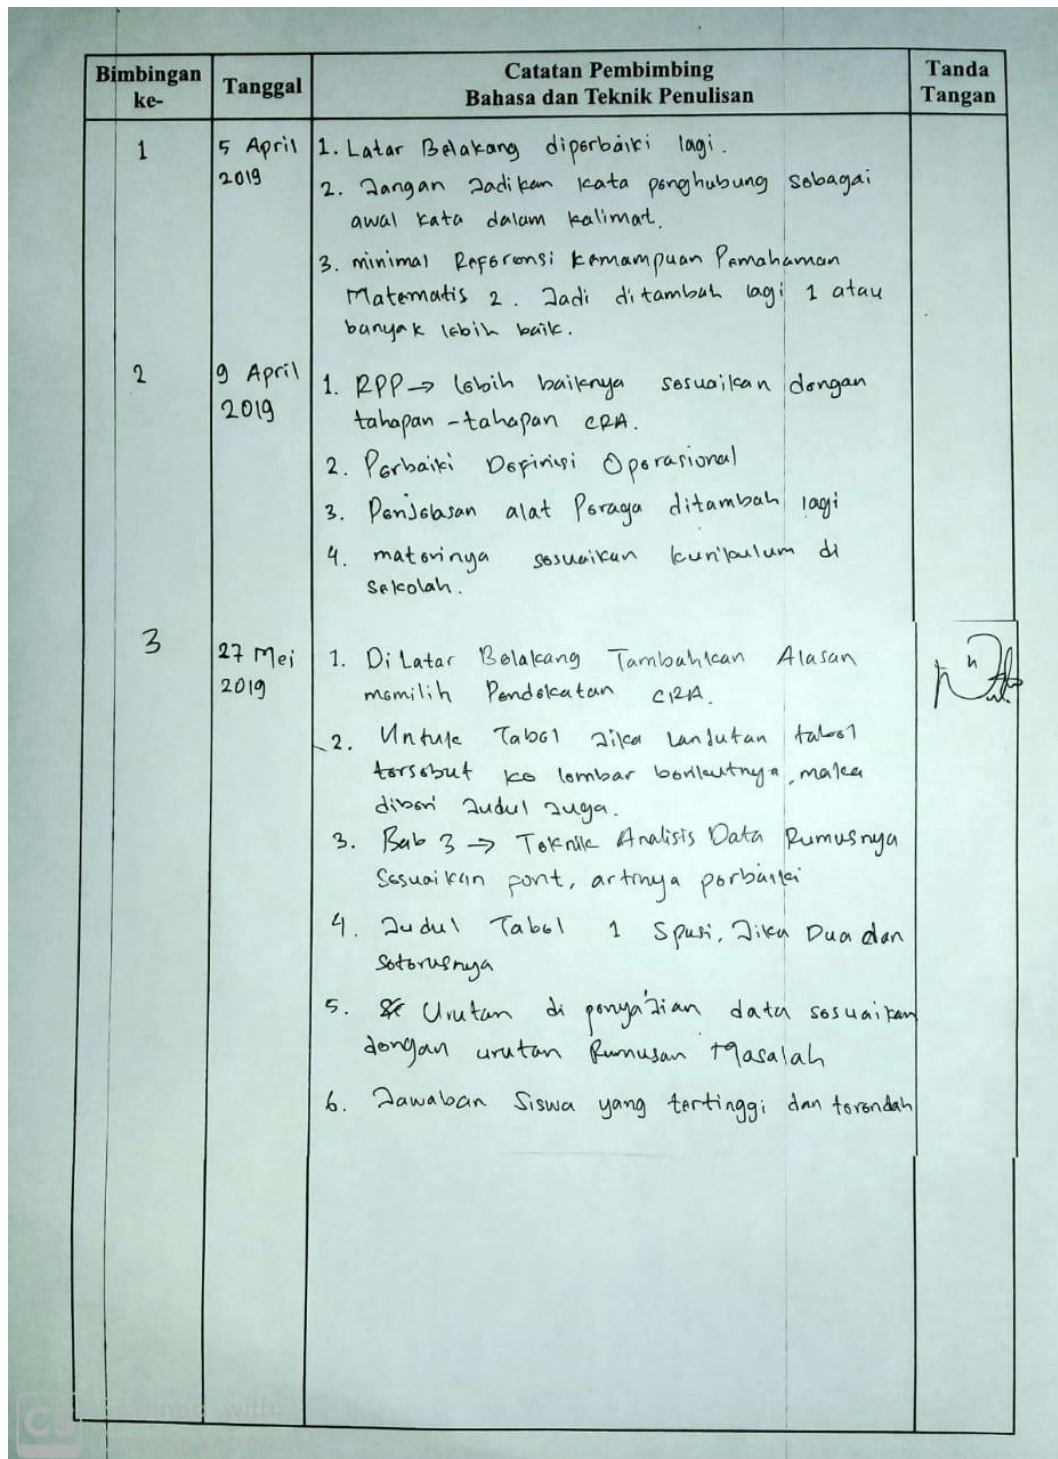 Bimbingan ke-
Tanggal
Catatan Pembimbing
Bahasa dan Teknik Penulisan
Tanda Tangan
1
5 April 2019
1. Latar Belakang diperbaiki lagi.
2. Jangan Jadikan kata penghubung sebagai
awal kata dalam kalimat.
3. minimal Referensi kemampuan Pemahaman
Matematis 2. Jadi ditambah lagi 1 atau
banyak lebih baik.
2
9 April 2019
1. RPP → lebih baiknya sesuaikan dengan
tahapan - tahapan CRA.
2. Perbaiki Definisi Operasional
3. Penjelasan alat Peraga ditambah lagi
4. materinya sesuaikan kurikulum di
sekolah.
3
27 Mei 2019
1. Di Latar Belakang Tambahkan Alasan
memilih Pendekatan CRA.
2. Untuk Tabel Jika Lanjutan tabel
tersebut ke lembar berikutnya, maka
diberi Judul Juga.
3. Bab 3 → Teknik Analisis Data Rumusnya
Sesuaikan font, artinya perbaiki
4. Judul Tabel 1 Spasi, Jika Dua dan
seterusnya
5. Urutan di penyajian data sesuaikan
dengan urutan Rumusan Masalah
6. Jawaban Siswa yang tertinggi dan terendah
CS
Scanned with